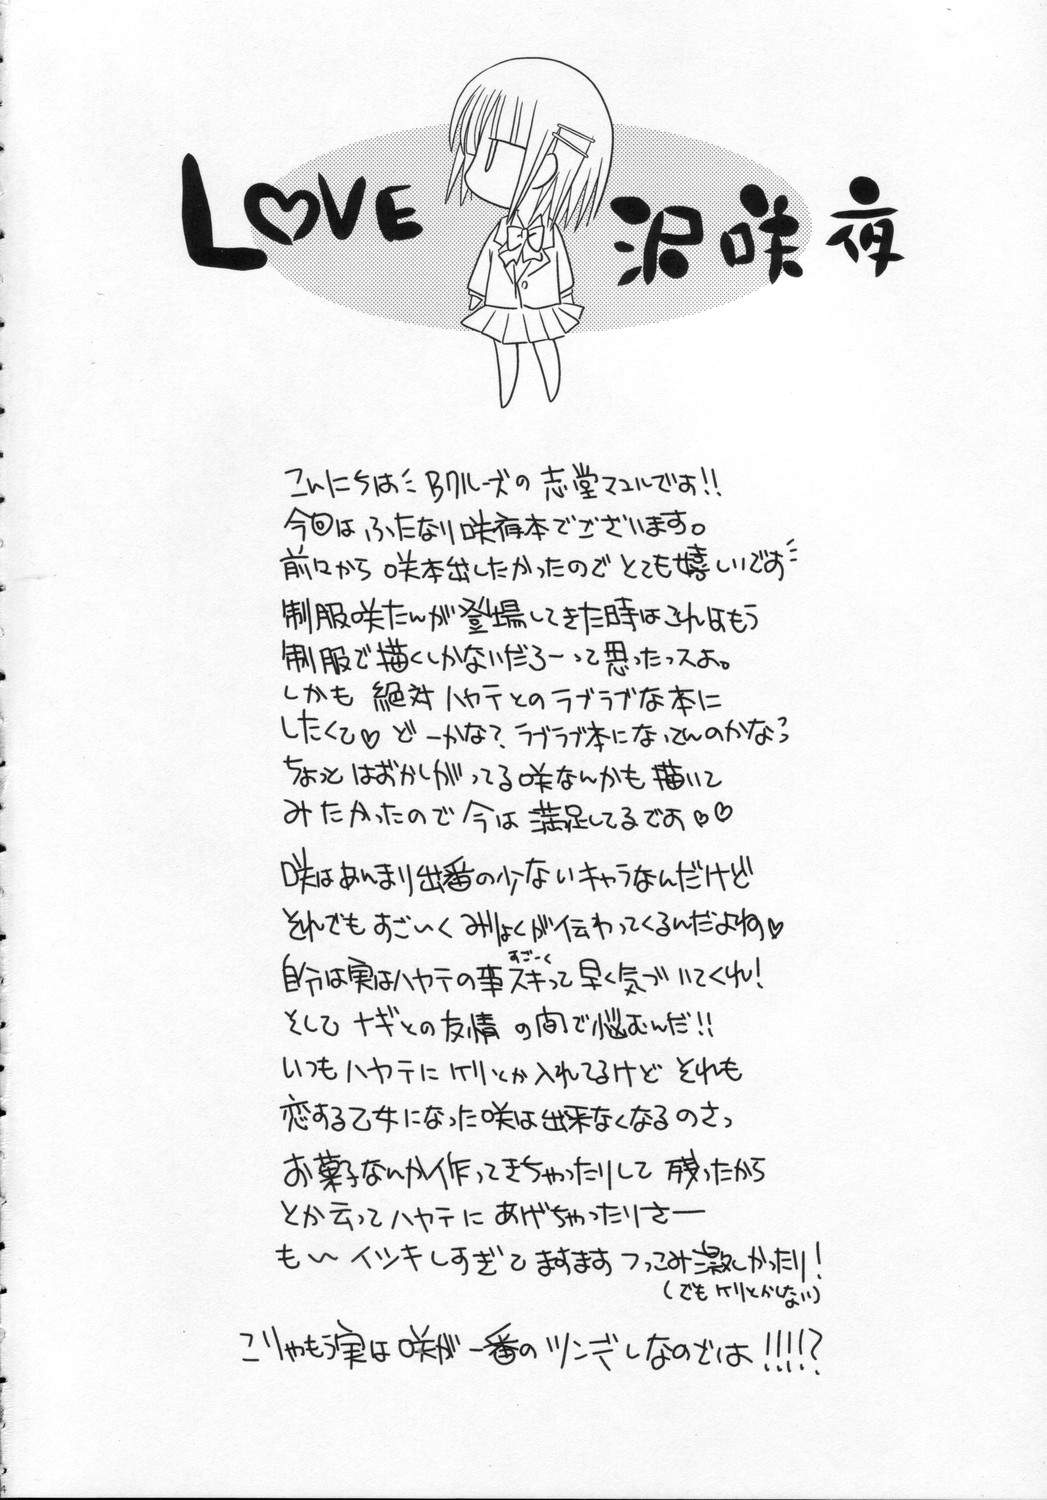 LOVE 沢咲夜
こんにちは Bクルーズの 志堂マユルです!!
今回は ふたなり咲夜本でございます。
前々から 咲本出したかったので とても嬉しいです
制服咲たんが登場してきた時はこれはもう
制服で描くしかないだろーって思ったっスよ。
しかも 絶対ハヤテとのラブラブな本に
したくて♡ どーかな?ラブラブ本になってんのかな?
ちょっとはおかしがってる咲なんかも描いて
みたかったので今は満足してるです♡♡
咲はあんまり出番の少ないキャラなんだけど
それでもすごいくみりょくが伝わってくるんだよね♡
自分は実はハヤテの事スキって早く気づいてくれ!
すごーく
そして ナギとの友情の間で悩むんだ!!
いつもハヤテにケリとか入れてるけど それも
恋する乙女になった咲は出来なくなるのさっ
お菓子なんか作ってきちゃったりして 残ったから
とか云ってハヤテに あげちゃったりさー
も〜イシキしすぎてますますつっこみ激しかったり!
(でもケリとかしない)
こりゃもう実は咲が一番のツンデレなのでは!!!!?